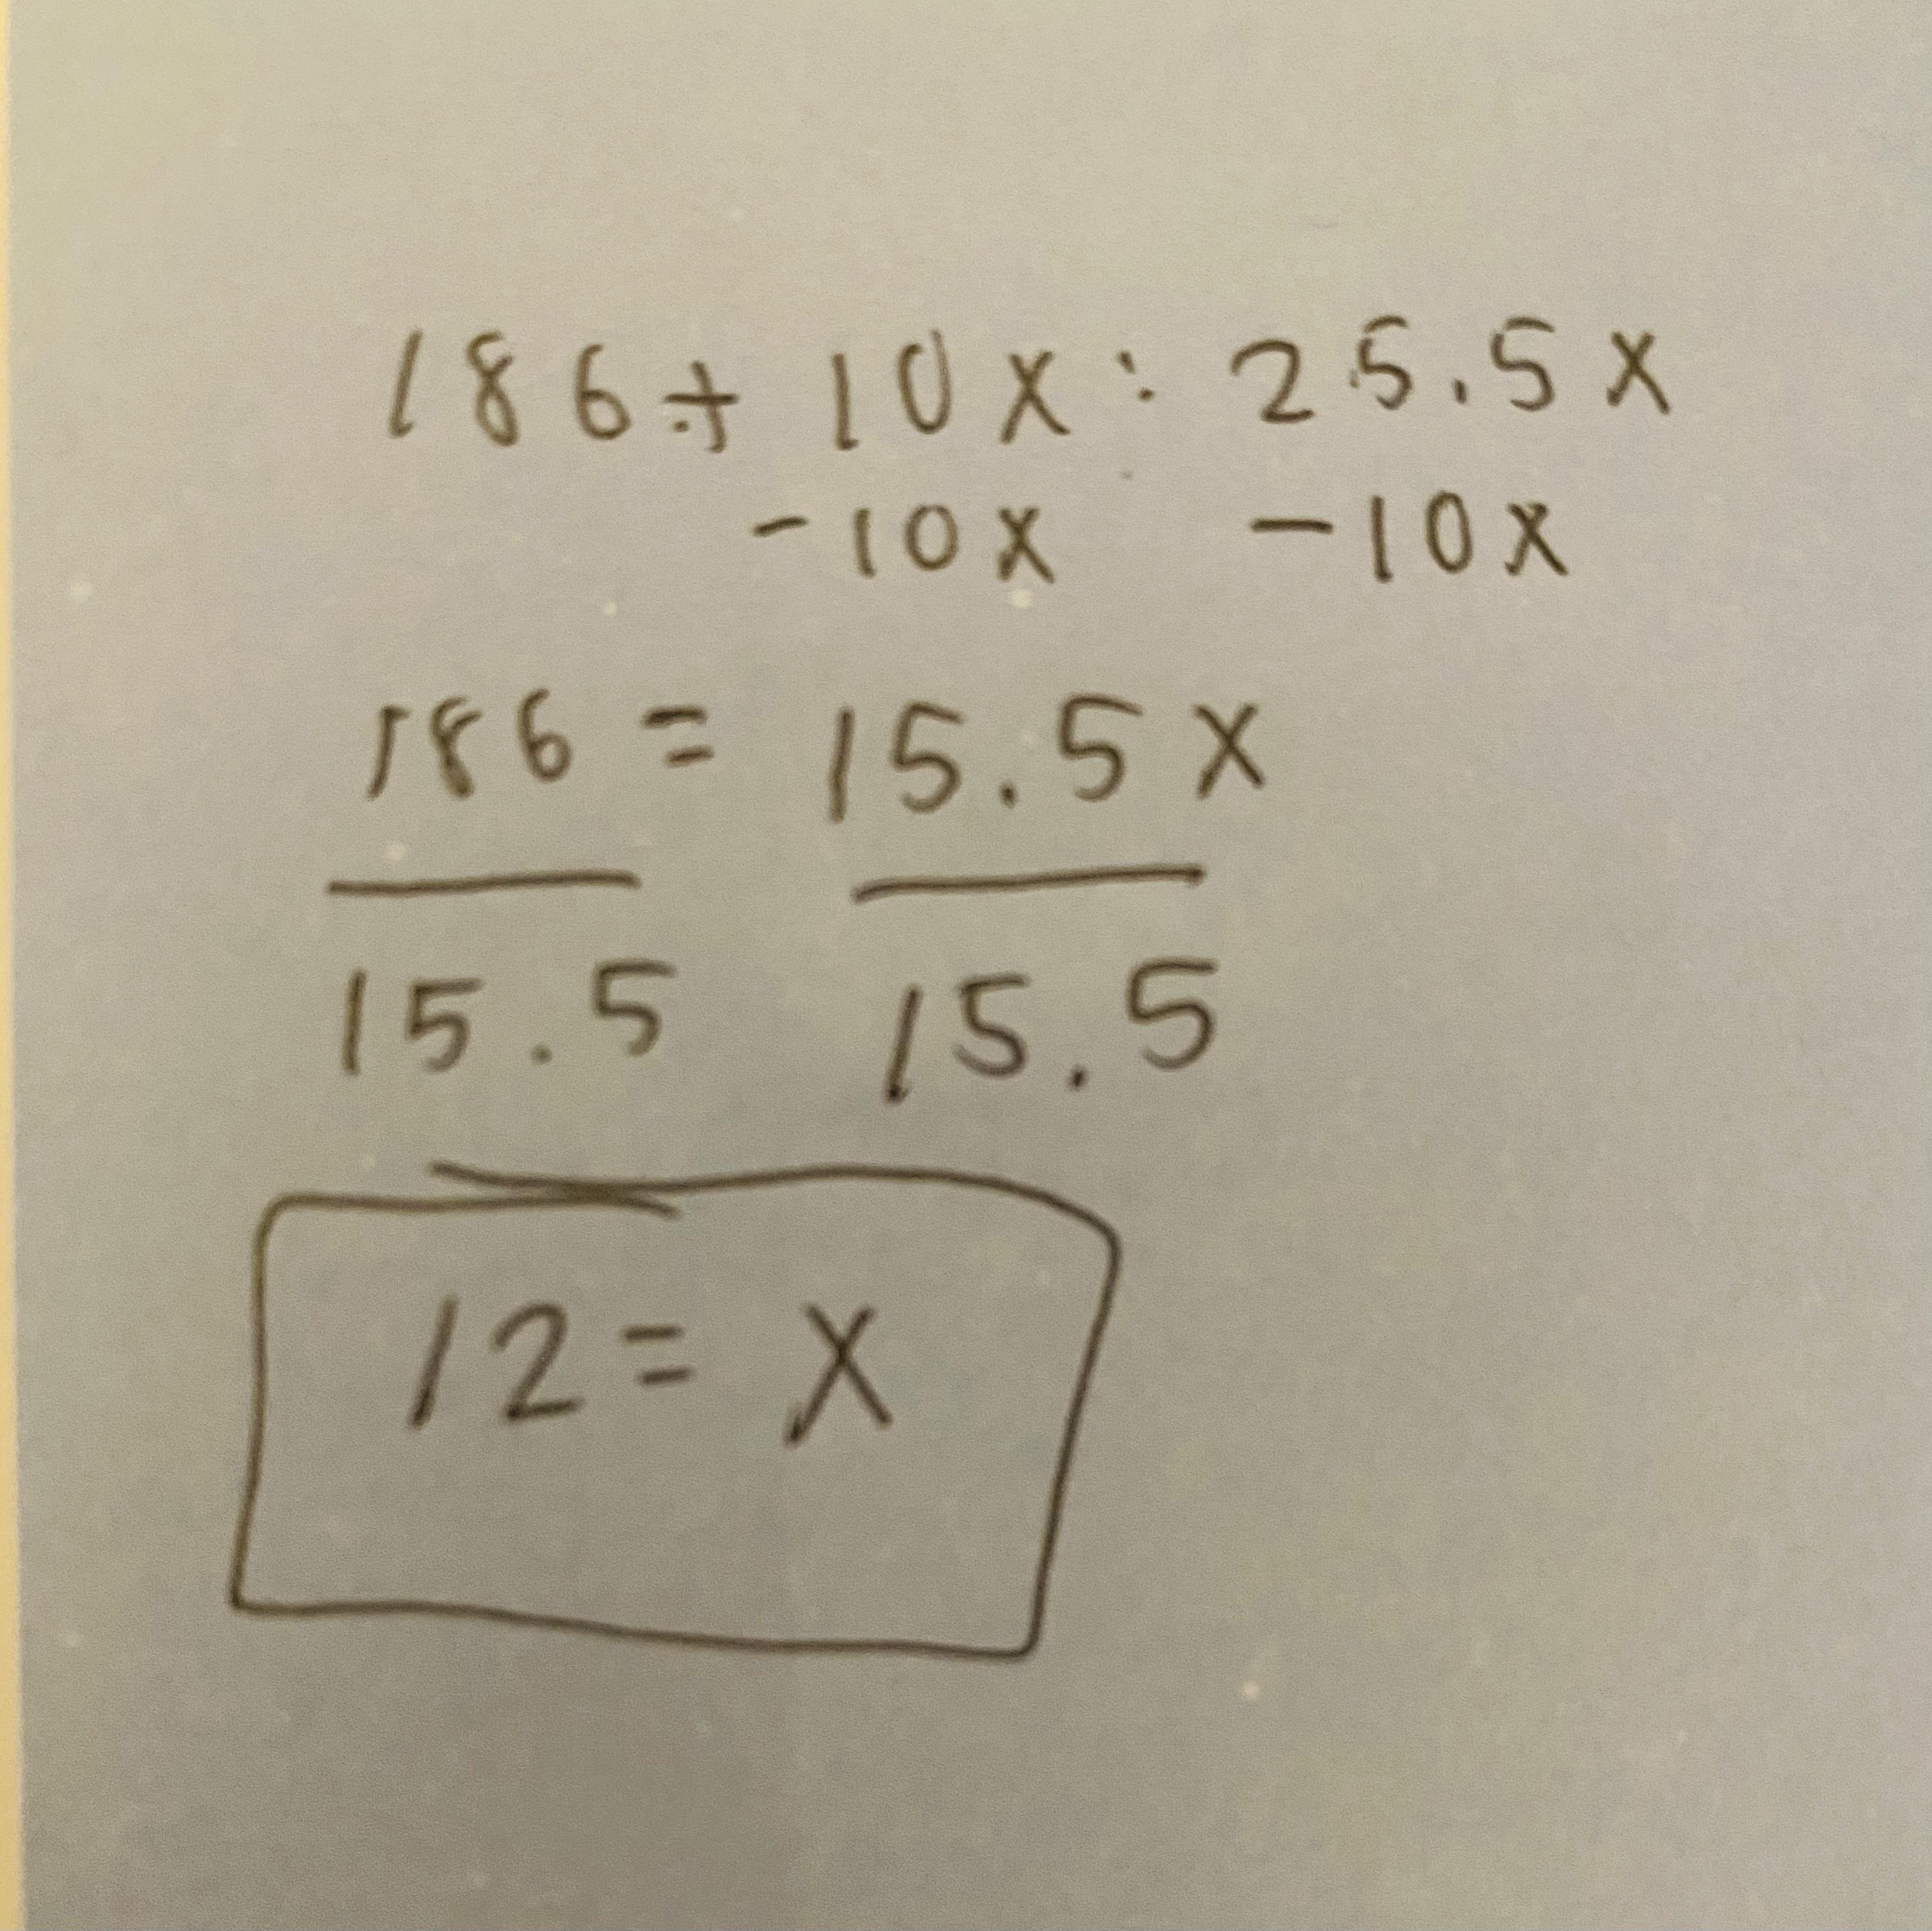 186+ 10x = 25.5x
-10x -10x
186 = 15.5x
15.5 15.5
12 = x